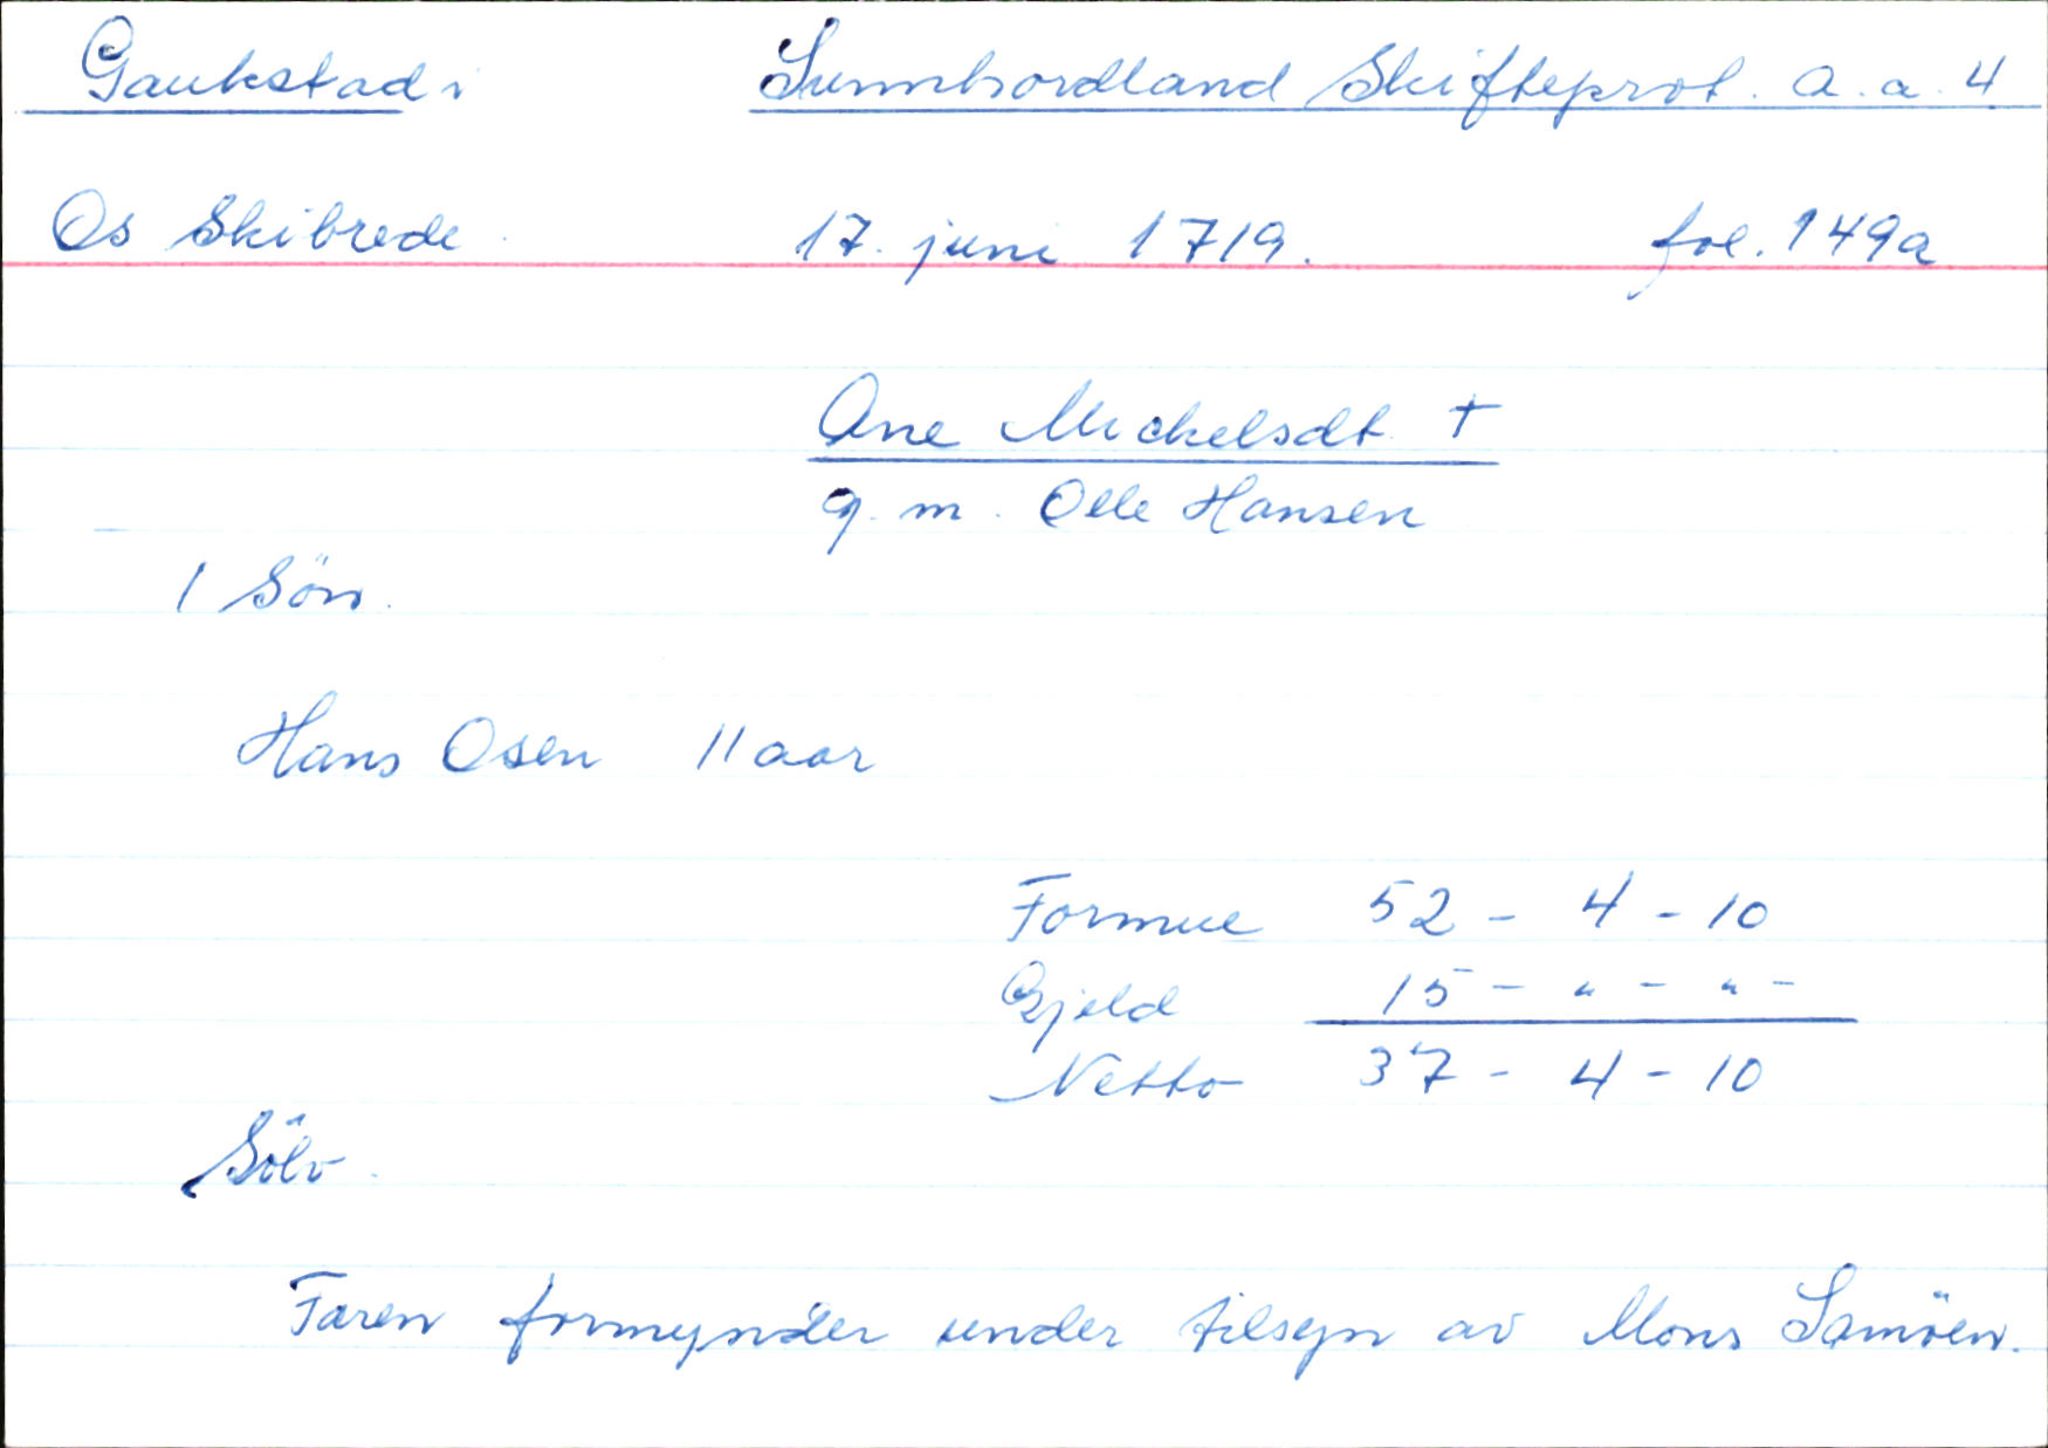 Gaukstad i Sunnhordland Skifteprot. A.a.4
Os Skibrede 17. juni 1719. fol. 149a
Ane Mickelsdt. +
g. m. Olle Hansen
1 Sön.
Hans Osen 11 aar
Formue 52 - 4 - 10
Gjeld 15 - " - " -
Netto 37 - 4 - 10
Sölv.
Faren formynder under tilsyn av Mons Samöen.